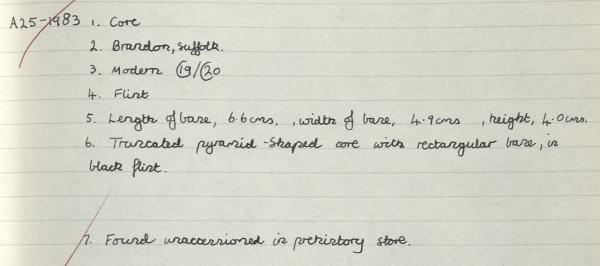 A25-1983 1. Core
2. Brandon, Suffolk.
3. Modern C19/C20
4. Flint
5. Length of base, 6.6cms. , width of base, 4.9cms , height, 4.0cms.
6. Truncated pyramid-shaped core with rectangular base, in
black flint.
7. Found unaccessioned in prehistory store.